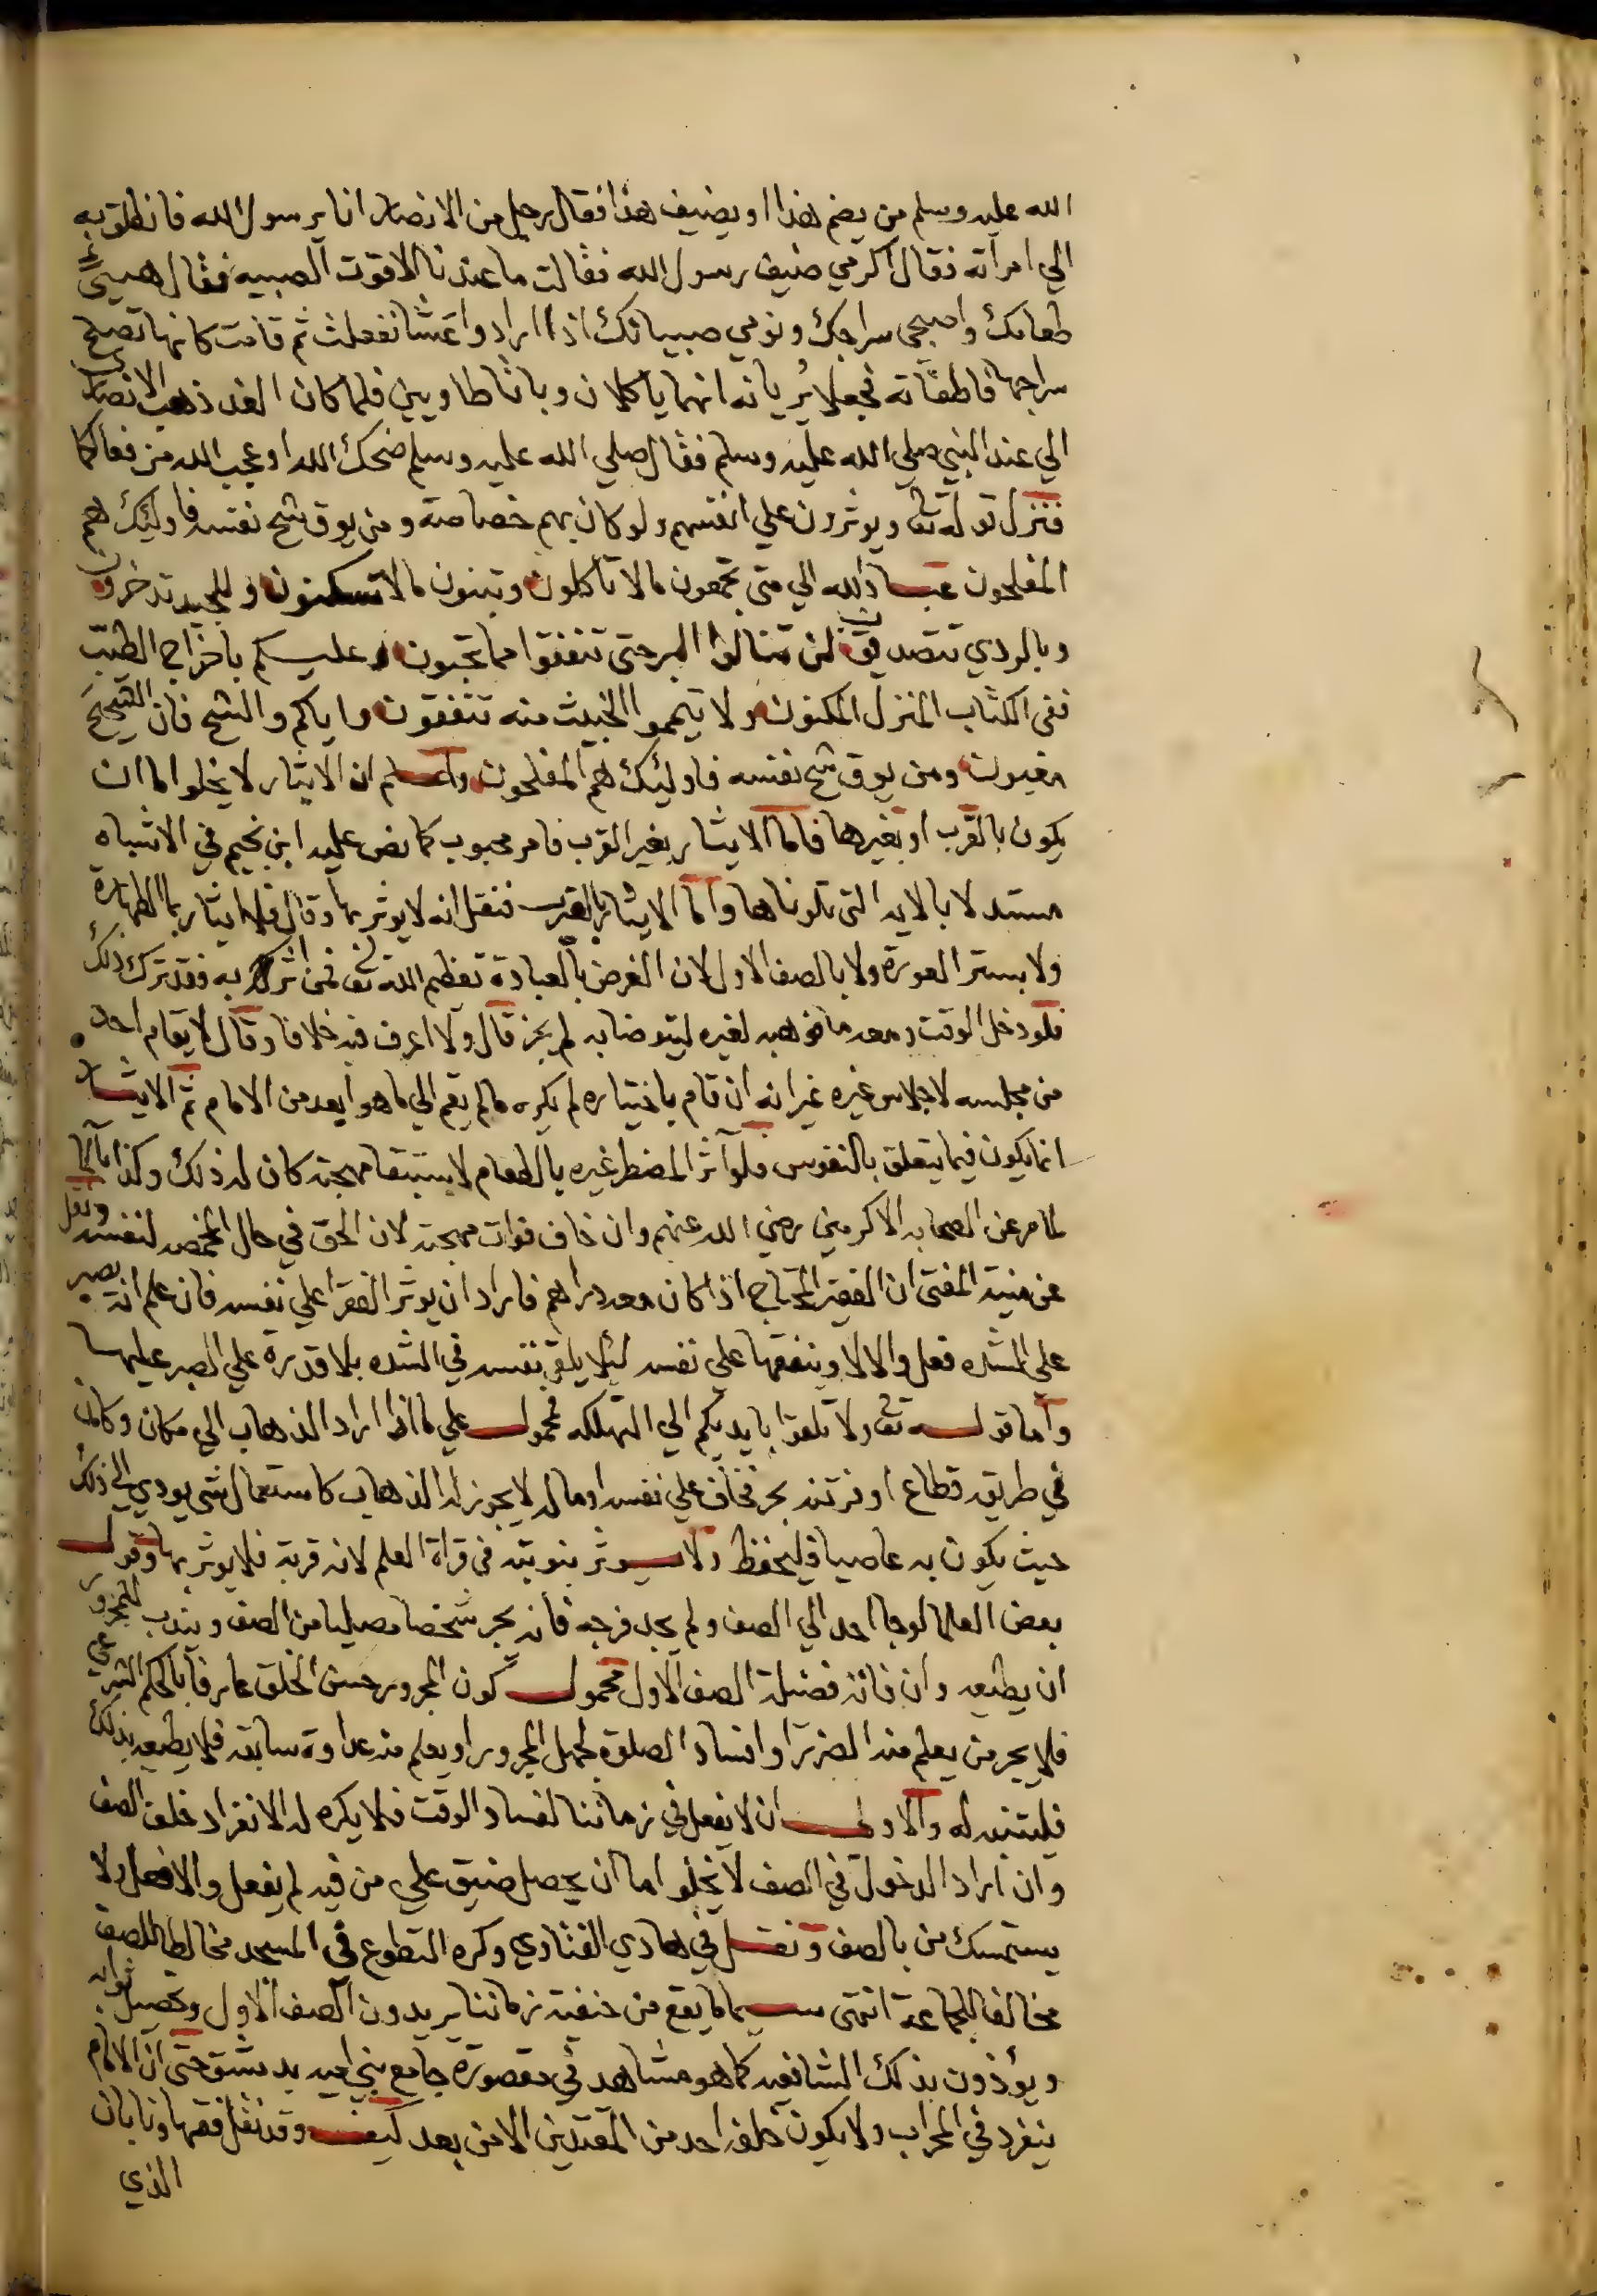 الله عليه وسلم من يضم هذا او يضيف هذا فقال رجل من الانصار انا يرسول الله فانطلق به
الي امرأته فقال اكرمي ضيف رسول الله فقالت ما عندنا الا قوت الصبيه فقال هييئ
طعامك واصبحى سراجك ونومي صبيانك اذا ارادوا عشا ففعلت ثم قامت كانها تصلح
سراجها فاطفأته فجعلا يُريانه انهما ياكلان وباتا طاويين فلما كان الغد ذهب الانصاري
الي عند النبي صلي الله عليه وسلم فقال صلي الله عليه وسلم ضحك الله او عجب الله من فعالكما
فنزل قوله تعا ويوثرون علي انفسهم ولو كان بهم خصاصة ومن يوق شح نفسه فاوليك هم
المفلحون عباد الله الي متى تجمعون مالا تأكلون وتبنون مالا تسكنون وللجيد تدخرون
وبالردي تتصدقون لن تنالوا البر حتى تنفقوا مما تحبون وعليكم باخراج الطيّب
ففى الكتاب المنزل المكنون ولا تيمموا الخبيث منه تنفقون واياكم والشح فان الشحيح
مغبون ومن يوق شح نفسه فاوليك هم المفلحون واعلم ان الايثار لا يخلوا اما ان
يكون بالقرب او بغيرها فاما الايثار بغير القرب فامر محبوب كما نص عليه ابن نجيم في الاشباه
مستدلا بالايه التى تلوناها واما الايثار بالقرب فنقل انه لا يوثر بها وقال فلا ايثار بما الطهارة
ولا بستر العورة ولا بالصف الاول لان الغرض بالعبادة تعظيم الله تعا فمن اثر به فقد ترك ذلك
فلو دخل الوقت ومعه ما فوهبه لغيره ليتوضا به لم يجز قال ولا اعرف فيه خلافا وقال لا يقام احد
من مجلسه لاجلاس غيره غير انه ان قام باختياره لم يكره مالم يقم الي ما هو ابعد من الامام ثم الايثار
انما يكون فيما يتعلق بالنفوس فلو آثر المضطر غيره بالطعام لاستبقا مهجته كان له ذلك وكذا بالما
لما مر عن الصحابه الاكرمين رضي الله عنهم وان خاف فوات مهجته لان الحق في حال المخمصه لنفسه ونقل
عن منية المفتى ان الفقير المحتاج اذا كان معه دراهم فاراد ان يوثر الفقرا علي نفسه فان علم انه يصبر
على الشده فعل والا لا وينفقها على نفسه لئلا يلقي بنفسه في الشده بلا قدرة علي الصبر عليها
واما قوله تعا ولا تلقوا بايديكم الي التهلكه فمحمول علي ما اذا اراد الذهاب الي مكان وكان
في طريقه قطاع او فرتنه بحر فخاف علي نفسه او ماله لا يجوز له الذهاب كاستعمال شي يودي الي ذلك
حيث يكون به عاصيا فليحفظ ولا يوثر بنوبته في قراة العلم لانه قربة فلا يوثر بها وقول
بعض العلما لو جا احد الي الصف ولم يجد فرجه فانه يجر شخصا مصليا من الصف ويندب للمجرور
ان يطيعه وان فاته فضيلة الصف الاول محمول كون المجرور حسن الخلق عارفا بالحكم الشرعي
فلا يجر من يعلم منه الضرر او افساد الصلوة لجهل المجرور او يعلم منه عداوة سابقه فلا يطيعه بذلك
فليتنبه له والاولى ان لا يفعل في زماننا لفساد الوقت فلا يكره له الانفراد خلف الصف
وان اراد الدخول في الصف لا يخلو اما ان يحصل ضيق علي من فيه لم يفعل والا فعل ولا
يستمسك من بالصف ونقل في هادي الفتاوي وكره التطوع في المسجد مخالطا للصف
مخالفا للجماعة انتهى سيما ما يقع من حنفية زماننا يريدون الصف الاول وتحصيل ثوابه
ويؤذون بذلك الشافعيه كما هو مشاهد في مقصورة جامع بني اميه بدمشق حتى ان الامام
ينفرد في المحراب ولا يكون خلفه احد من المقتدين الا من بعد كيف وقد نقل فقهاونا بان
الذي